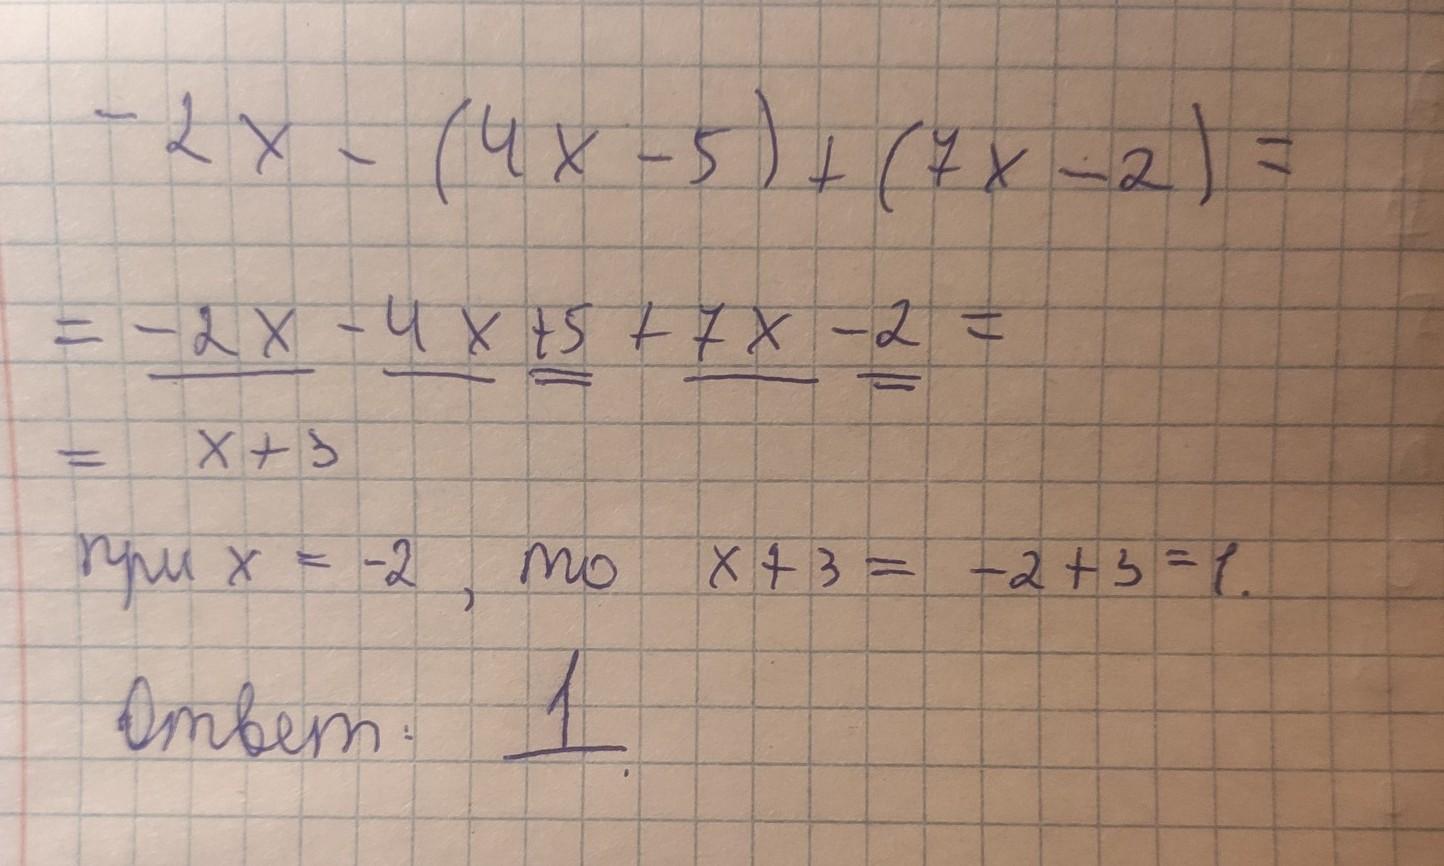 -2x - (4x - 5) + (7x - 2) =
= -2x - 4x + 5 + 7x - 2 =
= x + 3
при x = -2, то x + 3 = -2 + 3 = 1.
Ответ: 1.